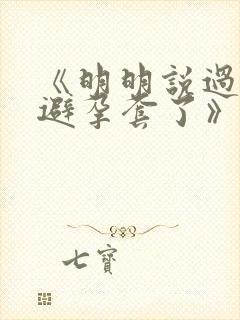 《明明説過
避孕套了》
七寳